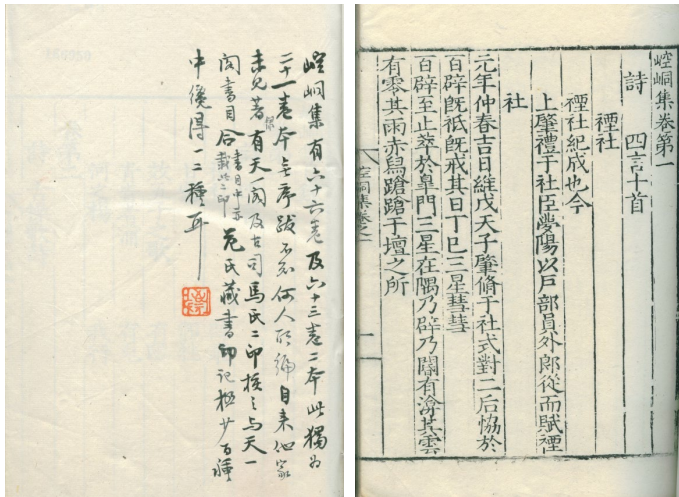 崆峒集卷第一
詩 四言十首
禋社
禋社紀成也今
上肇禮于社臣夢陽以戶部員外郎從而賦禋
社
元年仲春吉日維戊天子肇脩于社式對二后恊於
百辟既祗既戒其日丁巳三星彗彗
百辟至止萃於皐門三星在隅乃辟乃闢有渰其雲
有零其雨赤舄蹌蹌于壇之所
崆峒集有六十六卷及六十三卷二本此獨爲
二十一卷本無序跋不知何人所編目來他家
未見著錄有天一閣及古司馬氏二印核之與天一
閣書目合書目中亦載此二印范氏藏書印記極少百種
中僅得一二種耳